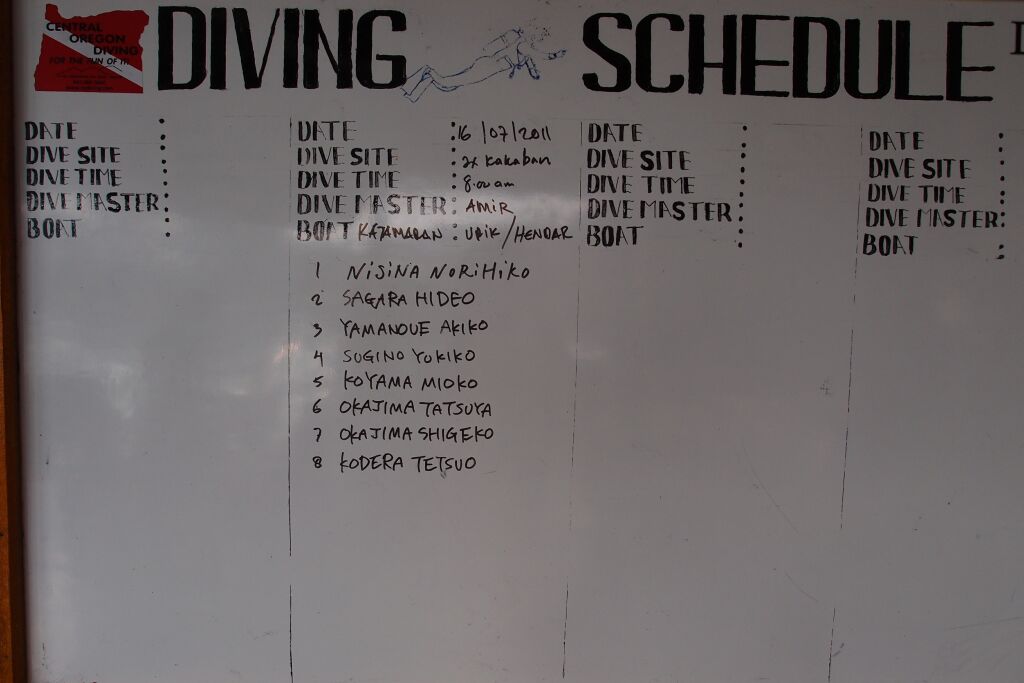 CENTRAL
OREGON
DIVING
FOR THE FUN OF IT!
DIVING SCHEDULE
DATE :
DIVE SITE :
DIVE TIME :
DIVE MASTER :
BOAT :
DATE : 16/07/2011
DIVE SITE : 2x Kakaban
DIVE TIME : 8.00 am
DIVE MASTER : AMIR
BOAT KATAMARAN : UPIK/HENDAR
1 NISINA NORIHIKO
2 SAGARA HIDEO
3 YAMANOUE AKIKO
4 SUGINO YUKIKO
5 KOYAMA MIOKO
6 OKAJIMA TATSUYA
7 OKAJIMA SHIGEKO
8 KODERA TETSUO
DATE :
DIVE SITE :
DIVE TIME :
DIVE MASTER :
BOAT :
DATE :
DIVE SITE :
DIVE TIME :
DIVE MASTER :
BOAT :